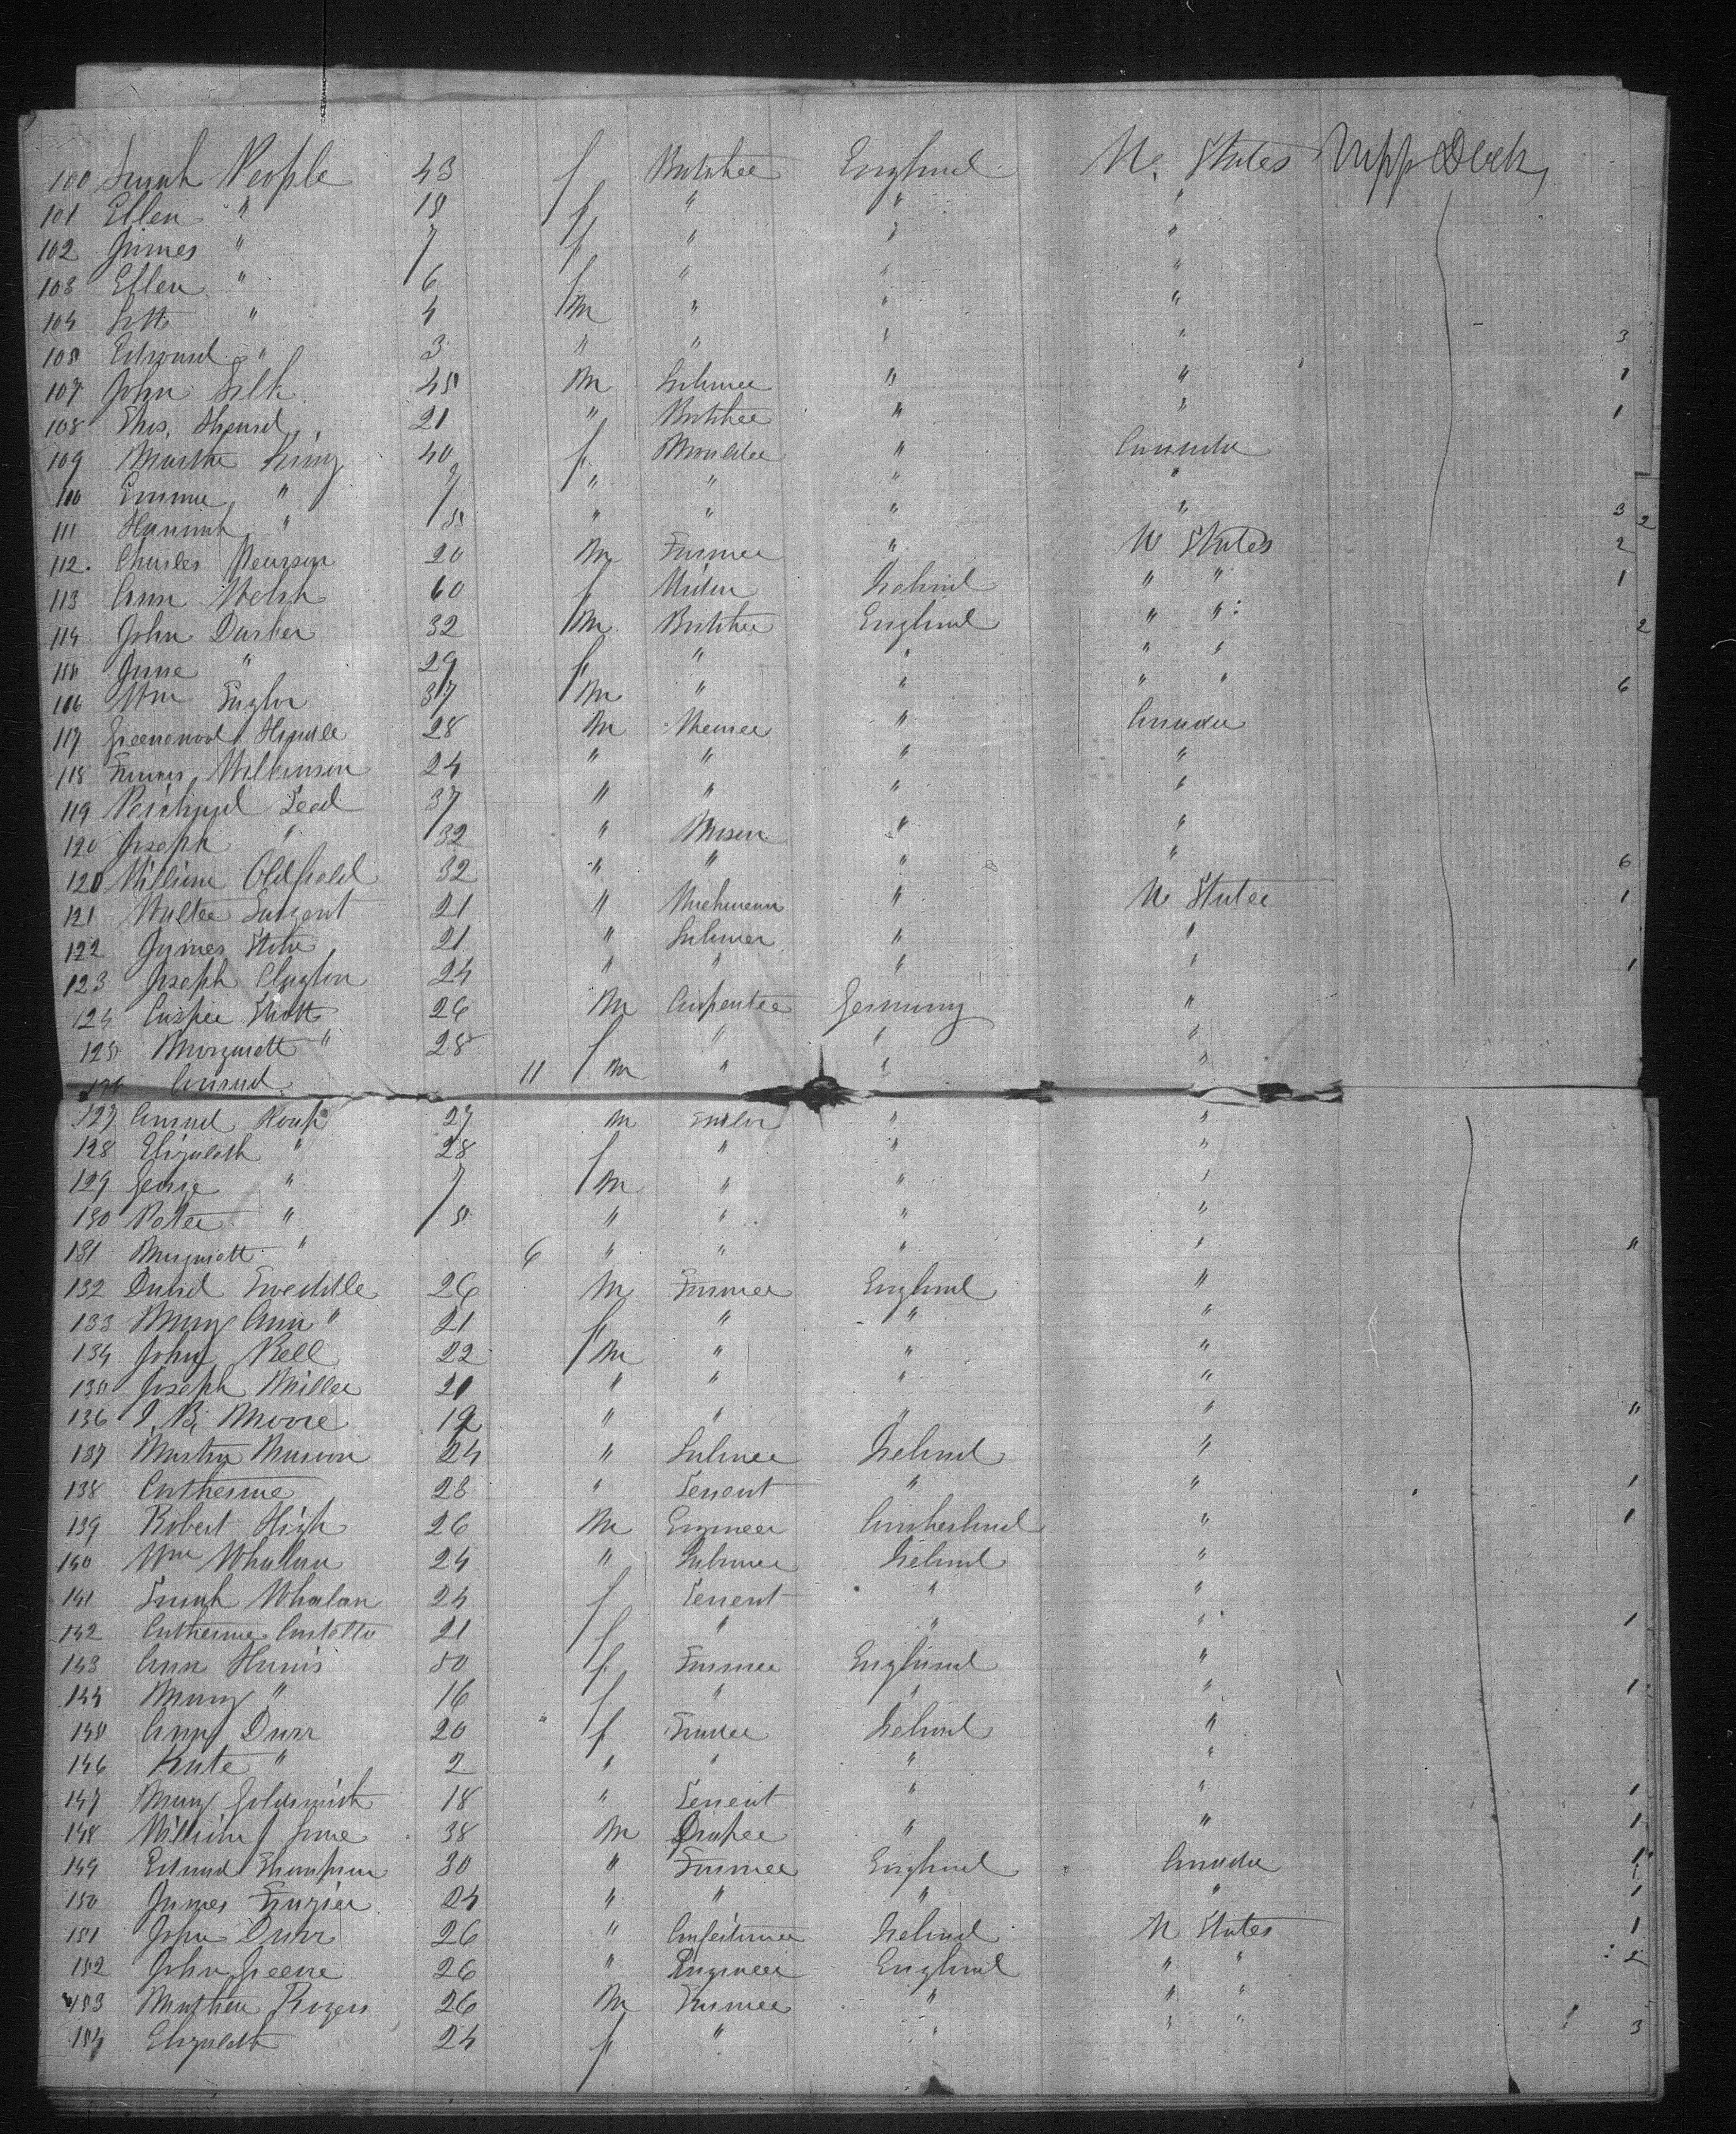 100 Sarah People 43 f Butcher England U. States Upp Deck
101 Ellen " 18 f " " "
102 James " 7 f " " "
103 Ellen " 6 f " " "
104 " 4 m " " "
105 Edward " 3 " " " " 3
107 John Silk 45 m Labourer " " 1
108 Thos. 21 " Butcher " " 1
109 Martha King 40 f Moulder " Canada
110 Emma " 7 " " " "
111 Hannah " 5 " " " " 3 2
112 Charles Pearson 20 m Farmer " U States 2
113 Ann Welsh 60 f Ireland " " 1
114 John Darker 32 m Butcher England " " 2
115 Jane " 29 f " " " "
116 Wm Taylor 37 m " " " " 6
117 Greenwood 28 m Weaver " Canada
118 Wilkinson 24 " " " "
119 37 " " " "
120 Joseph " 32 " Mason " "
120 William Oldfield 32 " " " " 6
121 Walter Sargent 21 " " U States 1
122 James 21 " Labourer " "
123 Joseph Clayton 24 " " " " 1
124 Casper Stott 26 m Carpenter Germany "
125 Margarett " 28 f " " "
126 Conrad 11 m " " "
127 Conrad 27 m Tailor " "
128 Elizabeth " 28 f " " "
129 George " 7 m " " "
130 Peter " 5 " " " "
131 Margarett " 6 " " " "
132 David Tweddle 26 m Farmer England "
133 Mary Ann " 21 f " " "
134 John Bell 22 m " " "
135 Joseph Miller 21 " " " "
136 J. B. Moore 19 " " " "
137 24 " Labourer Ireland "
138 Catherine 28 " Servant " " 1
139 Robert High 26 m Engineer " 1
140 Wm Whalan 24 " Labourer Ireland "
141 Sarah Whalan 24 f Servant " "
142 Catherine 21 f " " " 1
143 Ann Harris 50 f Farmer England "
144 Mary " 16 f " " " 1
145 Ann Durr 20 f Ireland "
146 Kate " 2 " " " "
147 Mary Goldsmith 18 " Servant " " 1
148 William 38 m Draper " " 1
149 Edward Thompson 30 " Farmer England Canada 1
150 James Frazier 24 " " " " 1
151 John Durr 26 " Ireland U States 1
152 John Greene 26 " Engineer England " " 2
153 Mathew Rogers 26 m Farmer " " "
154 Elizabeth 24 f " " " " 3